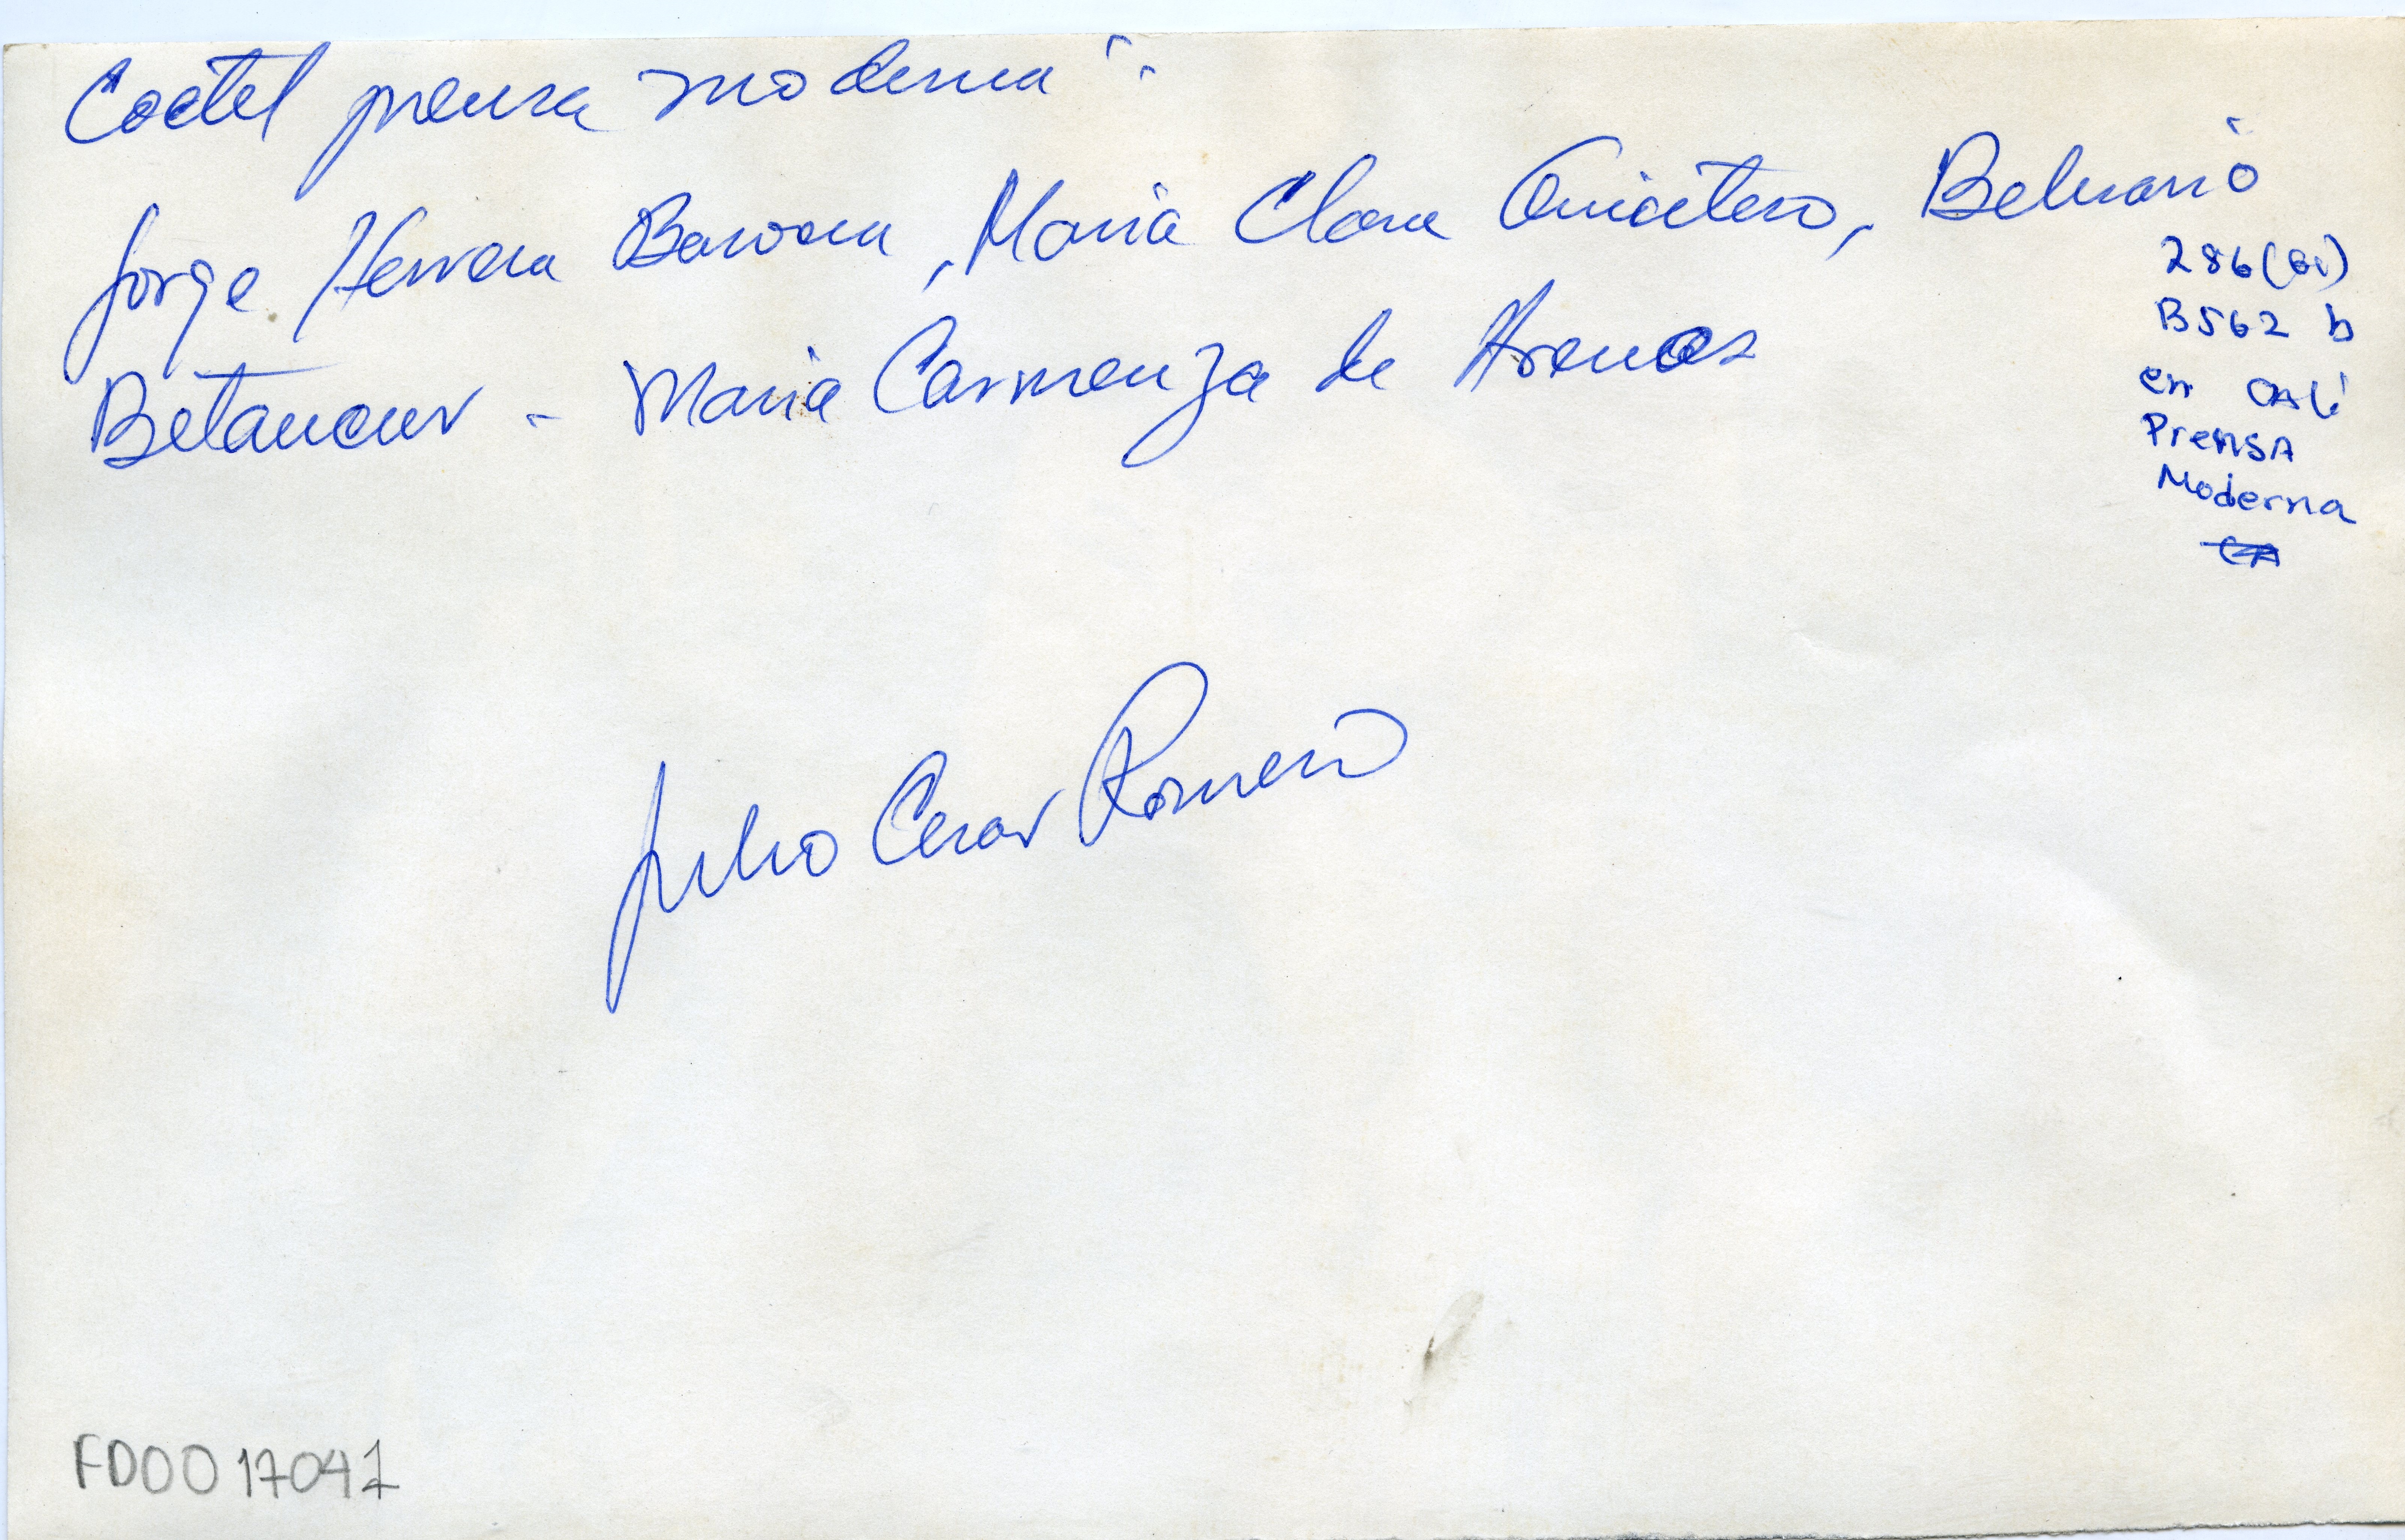 Coctel prensa moderna":
Jorge Herrera Barona, Maria Clara Quintero, Belisario
Betancur - Maria Carmenza de Arenas
286(61)
B562 b
en CALi
PrenSA
Moderna
Julio Cesar Romero
FD0017047